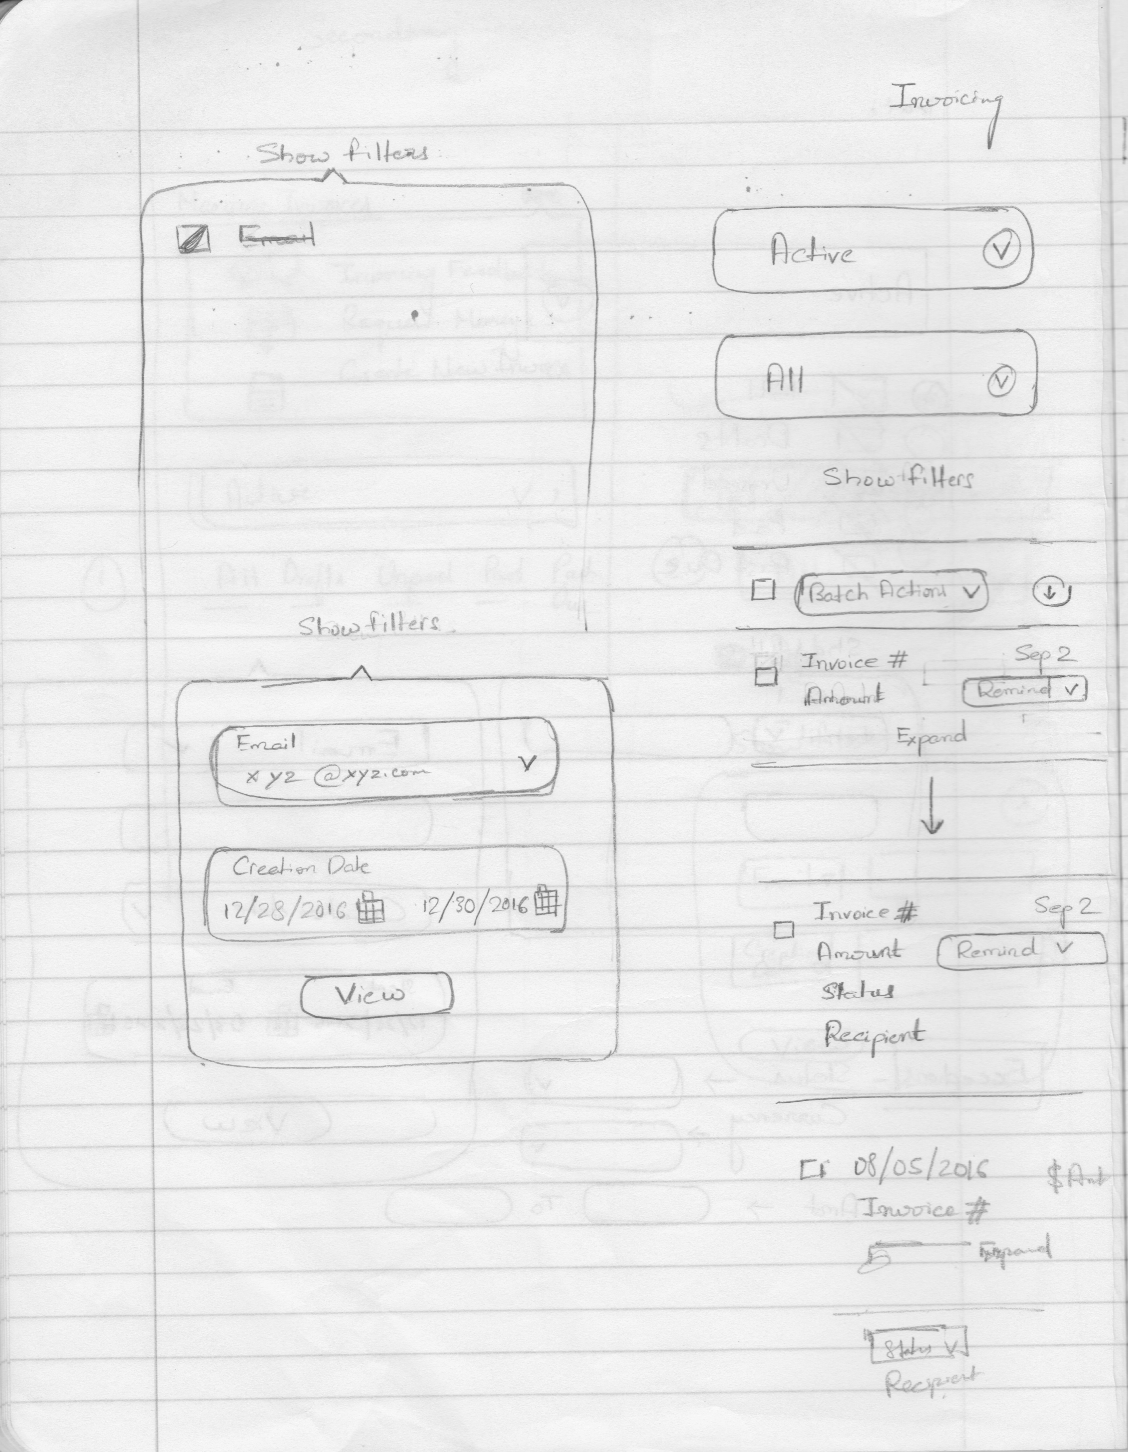 Invoicing
Show filters
Email
Active
All
Show filters
Batch Actions
Invoice # Sep 2
Amount Remind
Expand
Invoice # Sep 2
Amount Remind
Status
Recipient
08/05/2016 $Amt
Invoice #
Expand
Status
Recipient
Show filters
Email
xyz@xyz.com
Creation Date
12/28/2016 12/30/2016
View